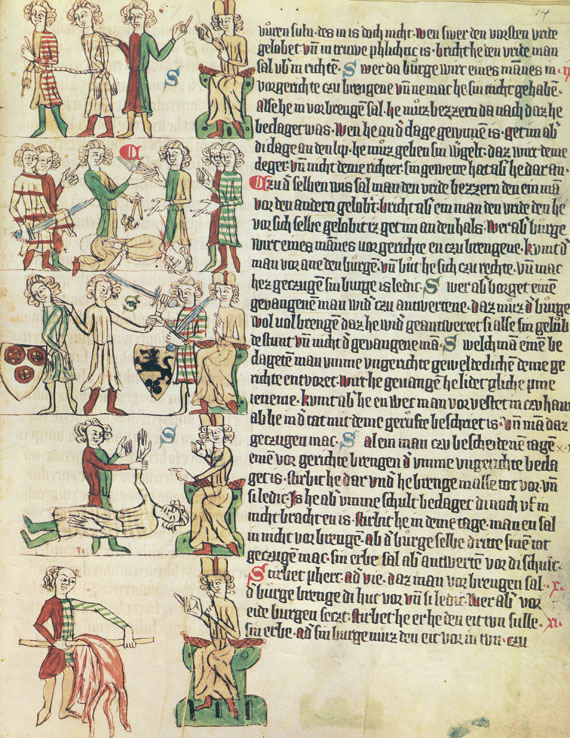 14
vůren suln. des in is doch nicht. wen swer den vorsten vride
gelobet. vn̄ in truwe phlichtic is. bricht he den vride man
sal vb̓ in richtē. S wer da burge wirt eines mānes in
vorgerichte czu brengene vn̄ ne mac he sin nicht gehabē.
alse he in vor brengē sal. he můz bezzern da nach daz he
bedaget was. wen he and̓ dage gewunnē is. get im ab̓
di dage an den lip. he můz gebē sin wergelt. daz wirt deme
cleger. vn̄ nicht deme richter. sin gewette hat alse he dar an.
Czu d̓ selben wis sal man den vride bezzern den ein mā
vor den andern gelobit. bricht ab̓ ein man den vride den he
vor sich selbe gelobit iz get im an den hals. Wer ab̓ burge
wirt eines mānes vor gerichte en czu brengene. kumt d̓
man vor ane den burgē. vn̄ but he sich czu rechte. vn̄ mac
hez geczugen sin burge is ledic. S wer ab̓ borget einē
gevangenē man wid̓ czu antwertene. daz můz d̓ burge
wol vol brengē daz he wid̓ geantwertet si alse sin gelub̓
de stunt vn̄ nicht d̓ gevangene mā. S welch mā einē be
dagetē man vmme vngerichte geweldeclichē deme ge
richte entvoret. wirt he gevangē he lidet gliche pine
ieneme. kumt ab̓ he en wec man vor vestet in czu hant
ab he in d̓ tat mit deme gerufte beschriet is. vn̄ mā daz
geczugen mac. S al ein man czu bescheidenē tagē
einē vor gerichte brengen d̓ vmme vngerichte beda
get is. stirbit he dar vnd̓ he brenge in alse tot vor vn̄
si ledic. Is he ab̓ vmme schult bedaget di noch vf in
nicht brachten is. stirbit he in deme tage. man en sal
in nicht vor brengē. ab d̓ burge selbe dritte sinē tot
geczugen mac. sin erbe sal ab̓ antwertē vor di schult.
Stirbet phert. ad̓ vie. daz man vor brengen sal. x.
d̓ burge brenge di hut vor vn̄ si ledic. Wer ab̓ vor
eide burgen seczt. stirbet he er he den eit tvn sulle. xi.
sin erbe. ad̓ sin burge můz den eit vor in tvn. czu